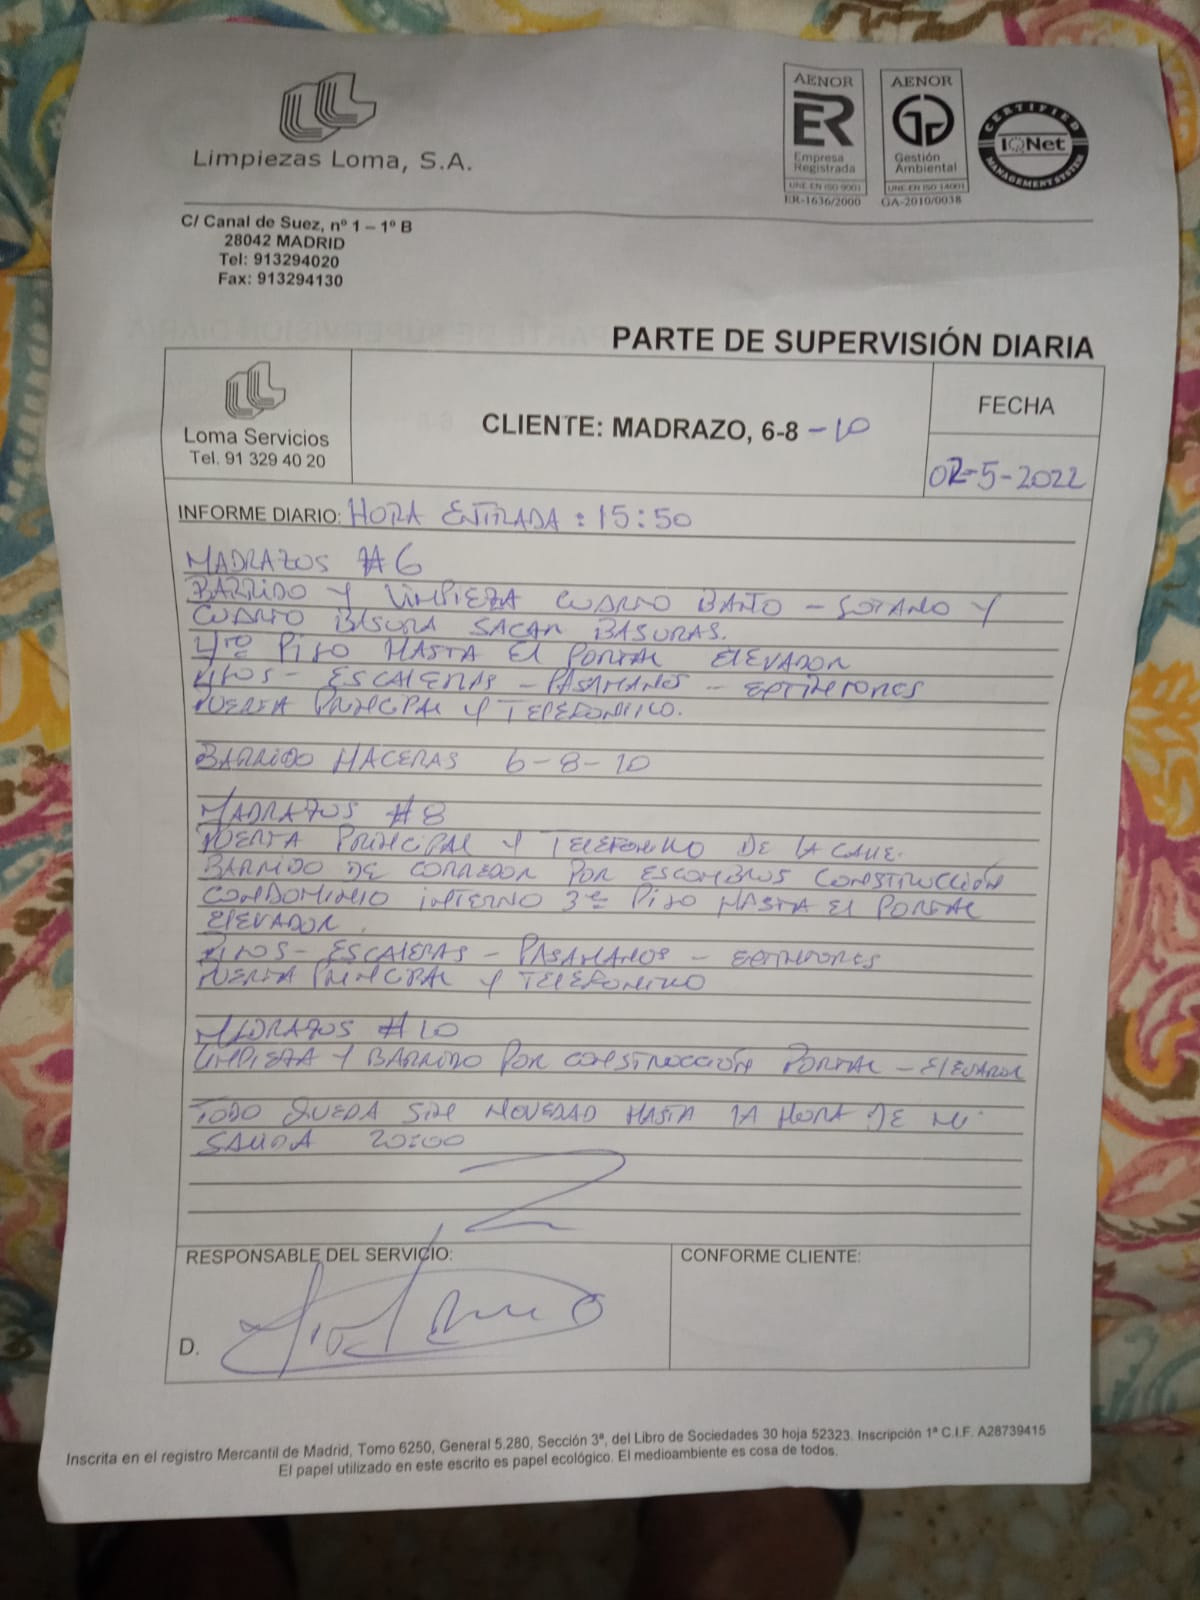 Limpiezas Loma, S.A.
AENOR
ER
Empresa
Registrada
UNE-EN ISO 9001
ER-1636/2000
AENOR
Gestión
Ambiental
UNE-EN ISO 14001
GA-2010/0038
CERTIFIED
IQNet
MANAGEMENT SYSTEM
C/ Canal de Suez, nº 1 – 1º B
28042 MADRID
Tel: 913294020
Fax: 913294130
PARTE DE SUPERVISIÓN DIARIA
Loma Servicios
Tel. 91 329 40 20
CLIENTE: MADRAZO, 6-8 - 10
FECHA
02-5-2022
INFORME DIARIO: HORA ENTRADA : 15:50
MADRAZOS #6
BARRIDO Y LIMPIEZA CUARTO BAÑO - SOTANO Y
CUARTO BASURA SACAR BASURAS.
4TO PISO HASTA EL PORTAL ELEVADOR
PISOS - ESCALERAS - PASAMANOS - EXTINTORES
PUERTA PRINCIPAL Y TELEFONILLO.
BARRIDO HACERAS 6-8-10
MADRAZOS #8
PUERTA PRINCIPAL Y TELEFONILLO DE LA CALLE.
BARRIDO DE CORREDOR POR ESCOMBROS CONSTRUCCIÓN
CONDOMINIO INTERNO 3er PISO HASTA EL PORTAL
ELEVADOR.
PISOS - ESCALERAS - PASAMANOS - EXTINTORES
PUERTA PRINCIPAL Y TELEFONILLO
MADRAZOS #10
LIMPIEZA Y BARRIDO POR CONSTRUCCIÓN PORTAL - ELEVADOR
TODO QUEDA SIN NOVEDAD HASTA LA HORA DE MI
SALIDA 20:00
RESPONSABLE DEL SERVICIO:
CONFORME CLIENTE:
D.
Inscrita en el registro Mercantil de Madrid, Tomo 6250, General 5.280, Sección 3ª, del Libro de Sociedades 30 hoja 52323. Inscripción 1ª C.I.F. A28739415
El papel utilizado en este escrito es papel ecológico. El medioambiente es cosa de todos.